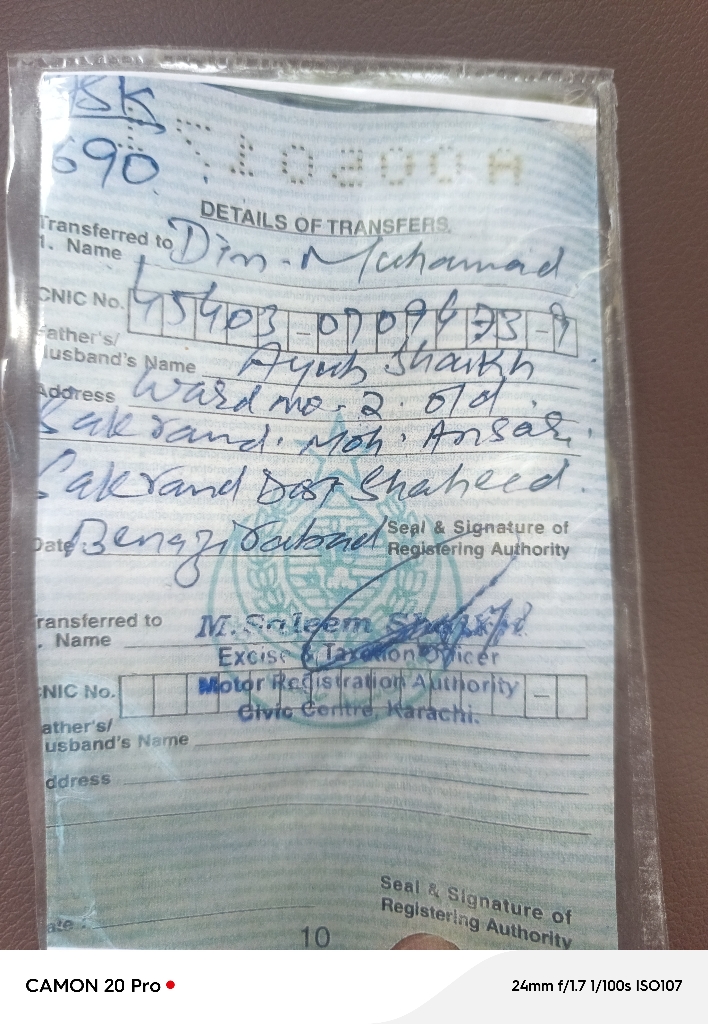 BSK
690
DETAILS OF TRANSFERS.
Transferred to
1. Name Din Muhamad
CNIC No. 45403-
Father's/
Husband's Name Ayub Shaikh
Address Ward no. 2. old.
Sakrand. Moh. Ansari
Sakrand Dist Shaheed.
Date Benazirabad
Seal & Signature of
Registering Authority
ransferred to
. Name
M. Saleem
Excise & Taxation Officer
NIC No.
Motor Registration Authority
Civic Centre, Karachi.
ather's/
usband's Name
ddress
Seal & Signature of
Registering Authority
ate :
10
CAMON 20 Pro
24mm f/1.7 1/100s ISO107